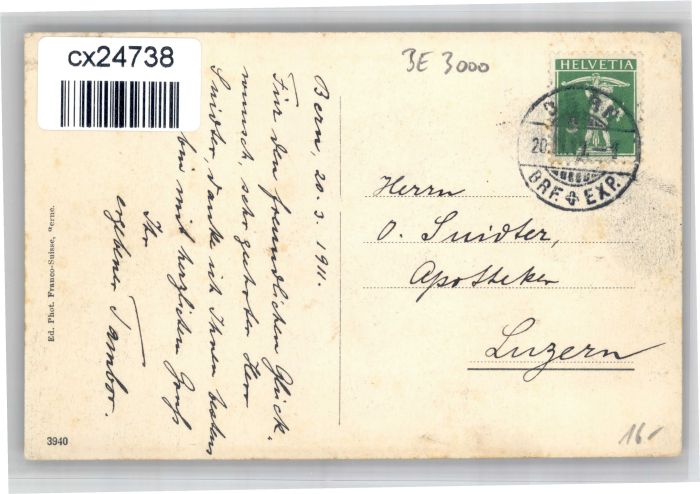 cx24738
BE 3000
HELVETIA
20.
BRF. EXP.
Bern, 20. 3. 1911.
Für den freundlichen Glück-
wunsch, sehr geehrter Herr
Suidter, danke ich Ihnen bestens
bin mit herzlichem Gruß
Ihr
ergebener
Herrn
O. Suidter,
Apotheker
Luzern
Ed. Phot. Franco-Suisse, Berne.
3940
16.-